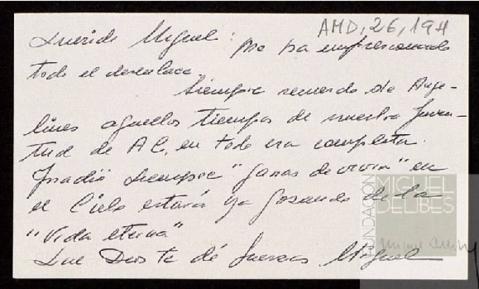 AMD, 26, 194
Querido Miguel: Me ha impresionado
todo el desenlace.
Siempre recuerdo de Ange-
lines aquellos tiempos de nuestra juven-
tud de AC, en todo era completa.
Irradió siempre "ganas de vivir" en
el Cielo estará ya gozando de la
"Vida eterna"
Que Dios te dé fuerzas Miguel
FUNDACIÓN
MIGUEL
DELIBES